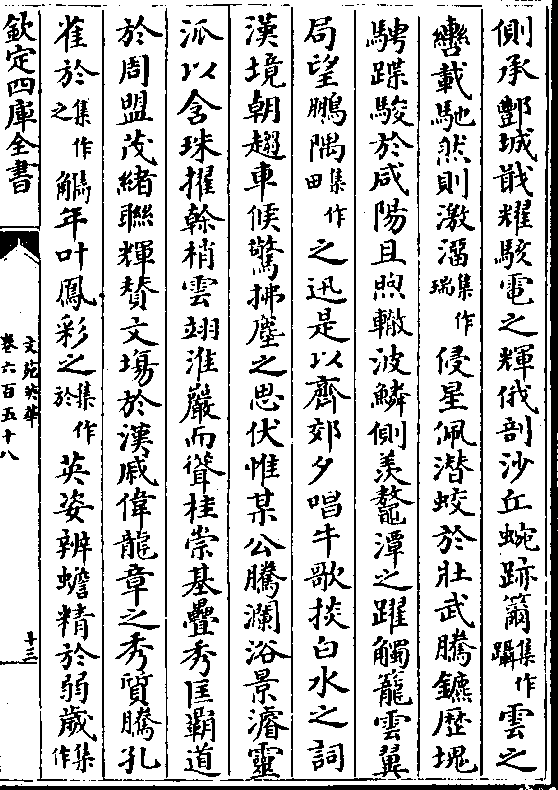 側承酆城戢耀駭電之輝俄剖沙丘蜿跡籋集作躡雲之
轡載馳然則激溜集作瑞侵星佩潛蛟於壯武騰鑣歴塊
騁蹀駿於咸陽且煦轍波鱗側羡鼇潭之躍觸籠雲翼
局望鵬隅集作田之迅是以齊郊夕唱牛歌掞白水之詞
漢境朝趨車候驚拂塵之思伏惟某公騰瀾浴景濬靈
派以含珠擢榦梢雲翊淮巖而聳桂崇基疊秀匡霸道
於周盟茂緒聯輝賛文場於漢戚偉龍章之秀質騰孔
雀於集作之觿年叶鳳彩之集作於英姿辨蟾精於弱歲集作
欽定四庫全書
文苑英華
卷六百五十八
十三